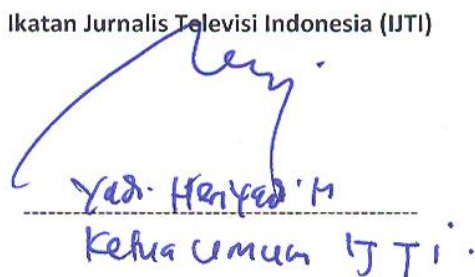 Ikatan Jurnalis Televisi Indonesia (IJTI)
Yadi Heriyadi H
Ketua Umum IJTI.